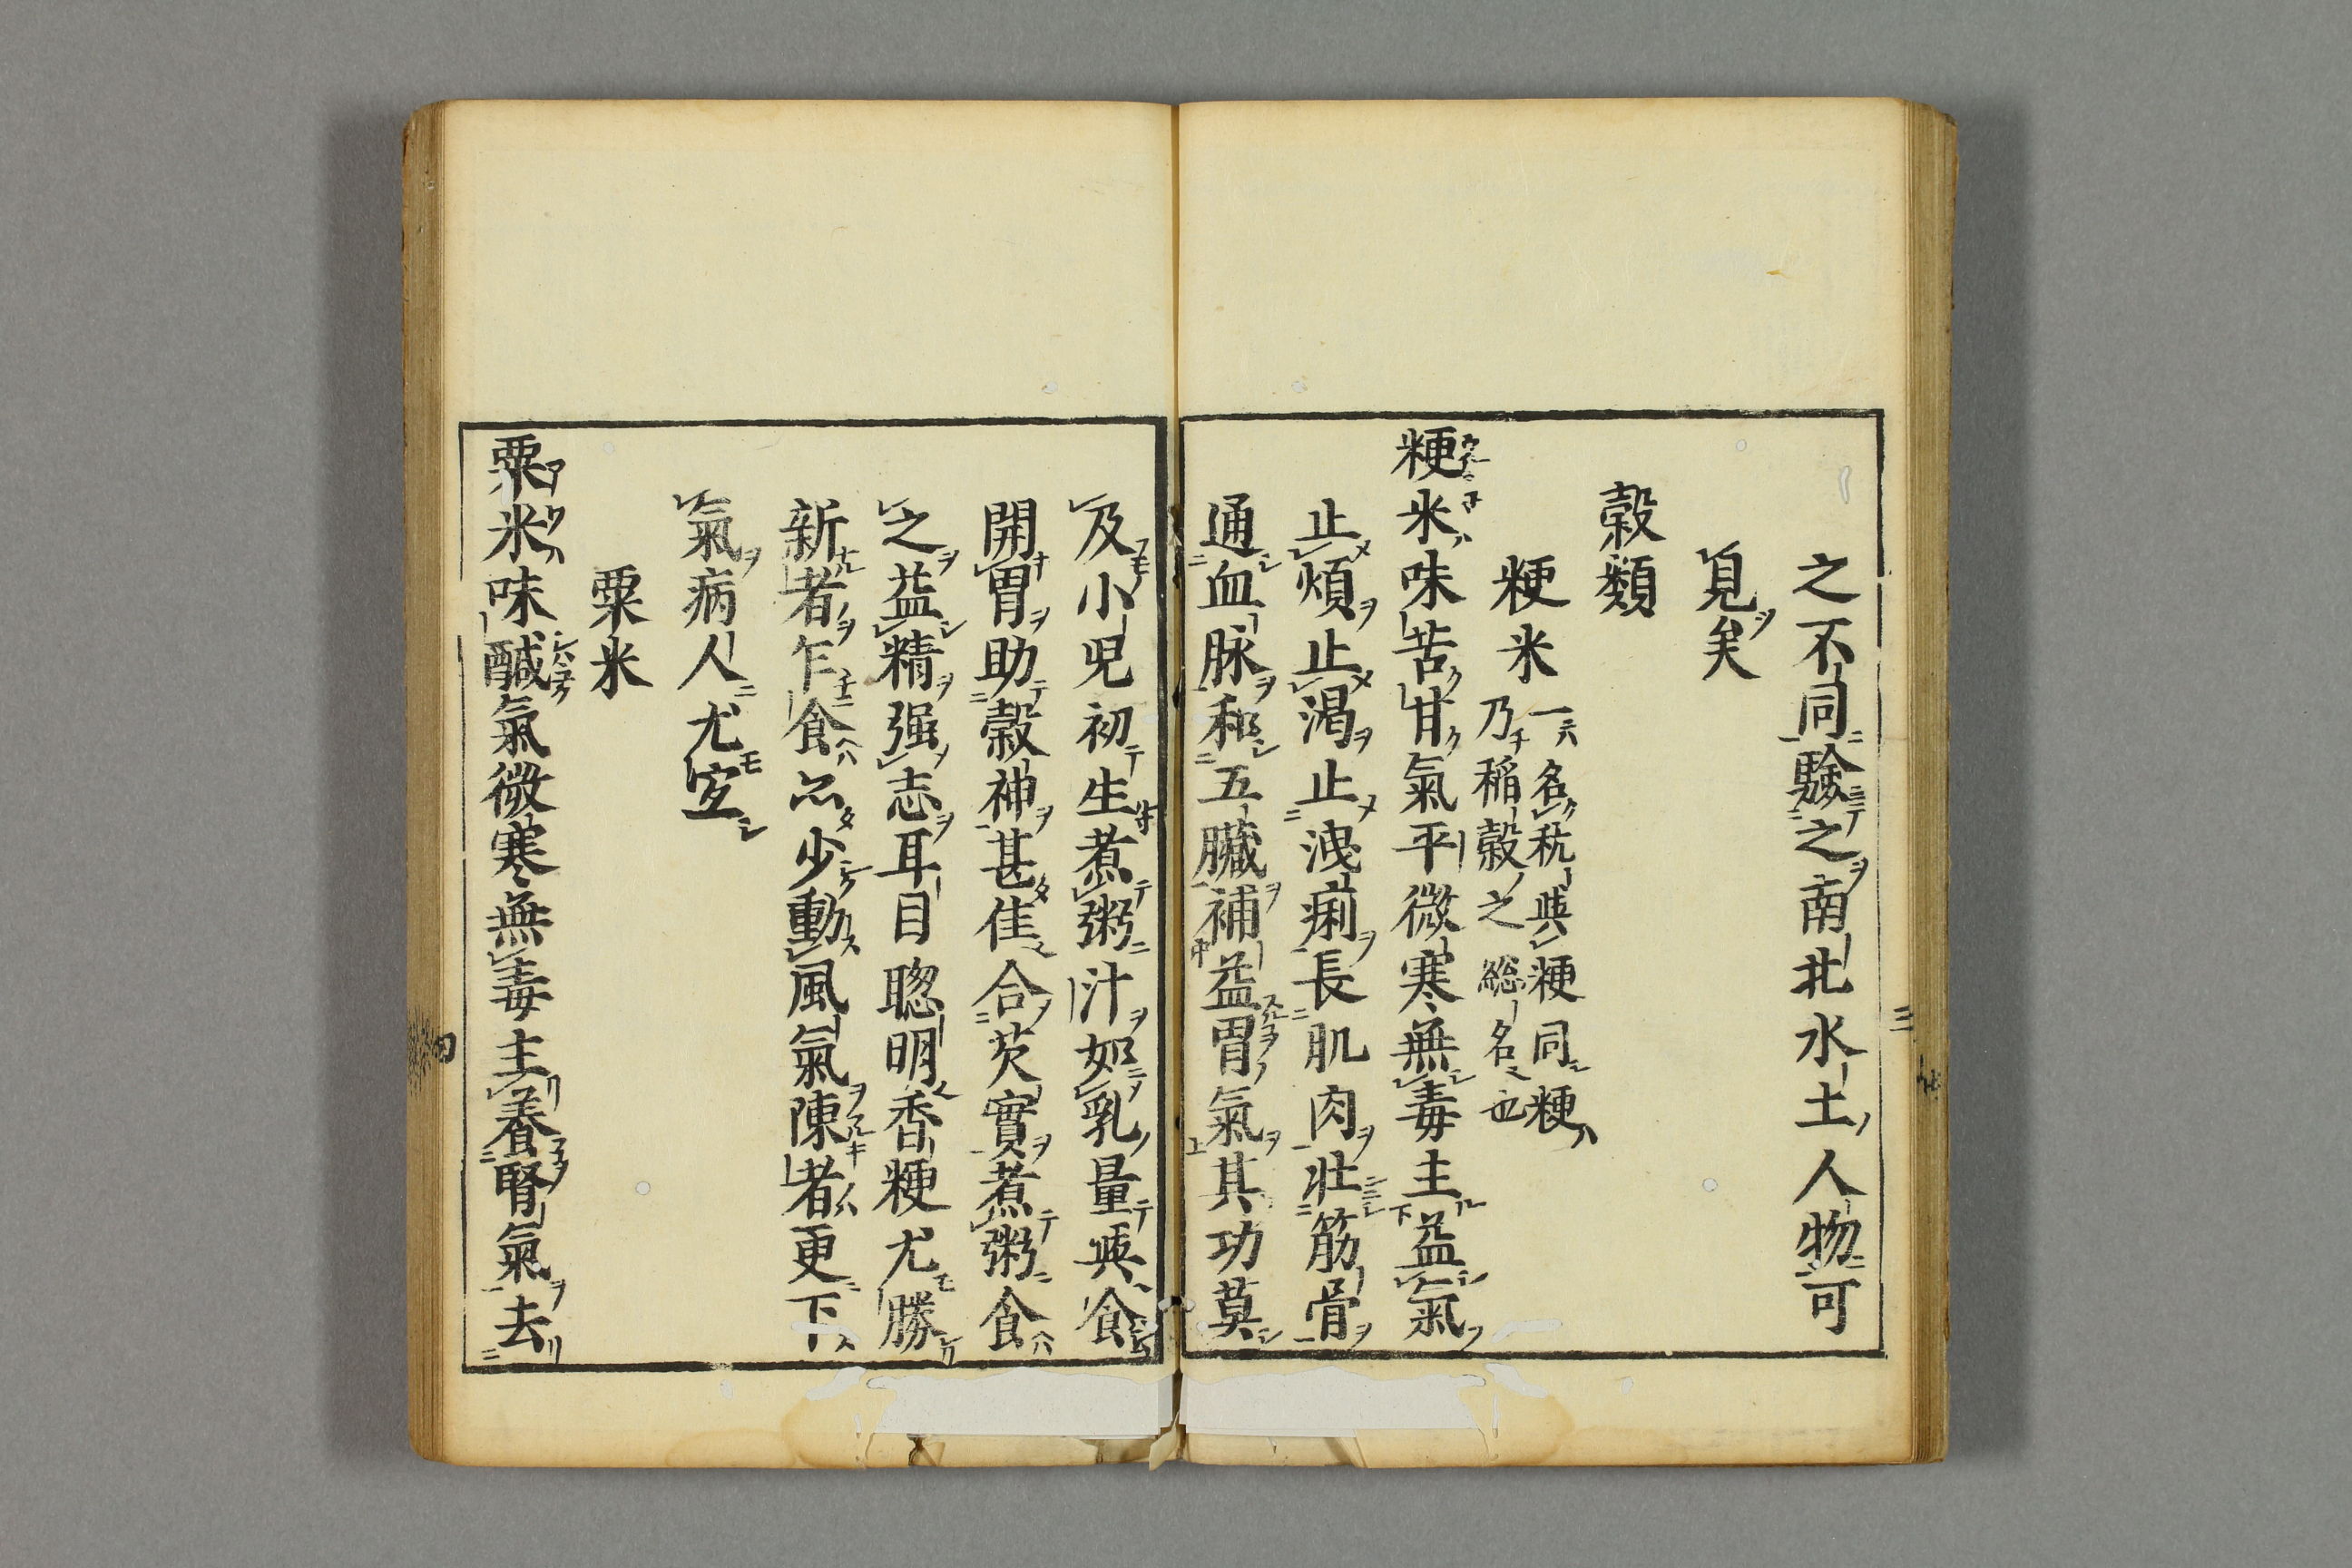 之不同驗之南北水土人物可
見矣
穀類
粳米
一名秔與粳同粳
乃稲穀之総名也
粳米味苦甘氣平微寒無毒主益氣
止煩止渇止洩痢長肌肉壮筋骨
通血脉和五臓補益胃氣其功莫
及小児初生煮粥汁如乳量與食
開胃助穀神甚佳合芡實煮粥食
之益精强志耳目聡明香粳尤勝
新者乍食亦少動風氣陳者更下
氣病人尤宜
粟米
粟米味醎氣微寒無毒主養腎氣去